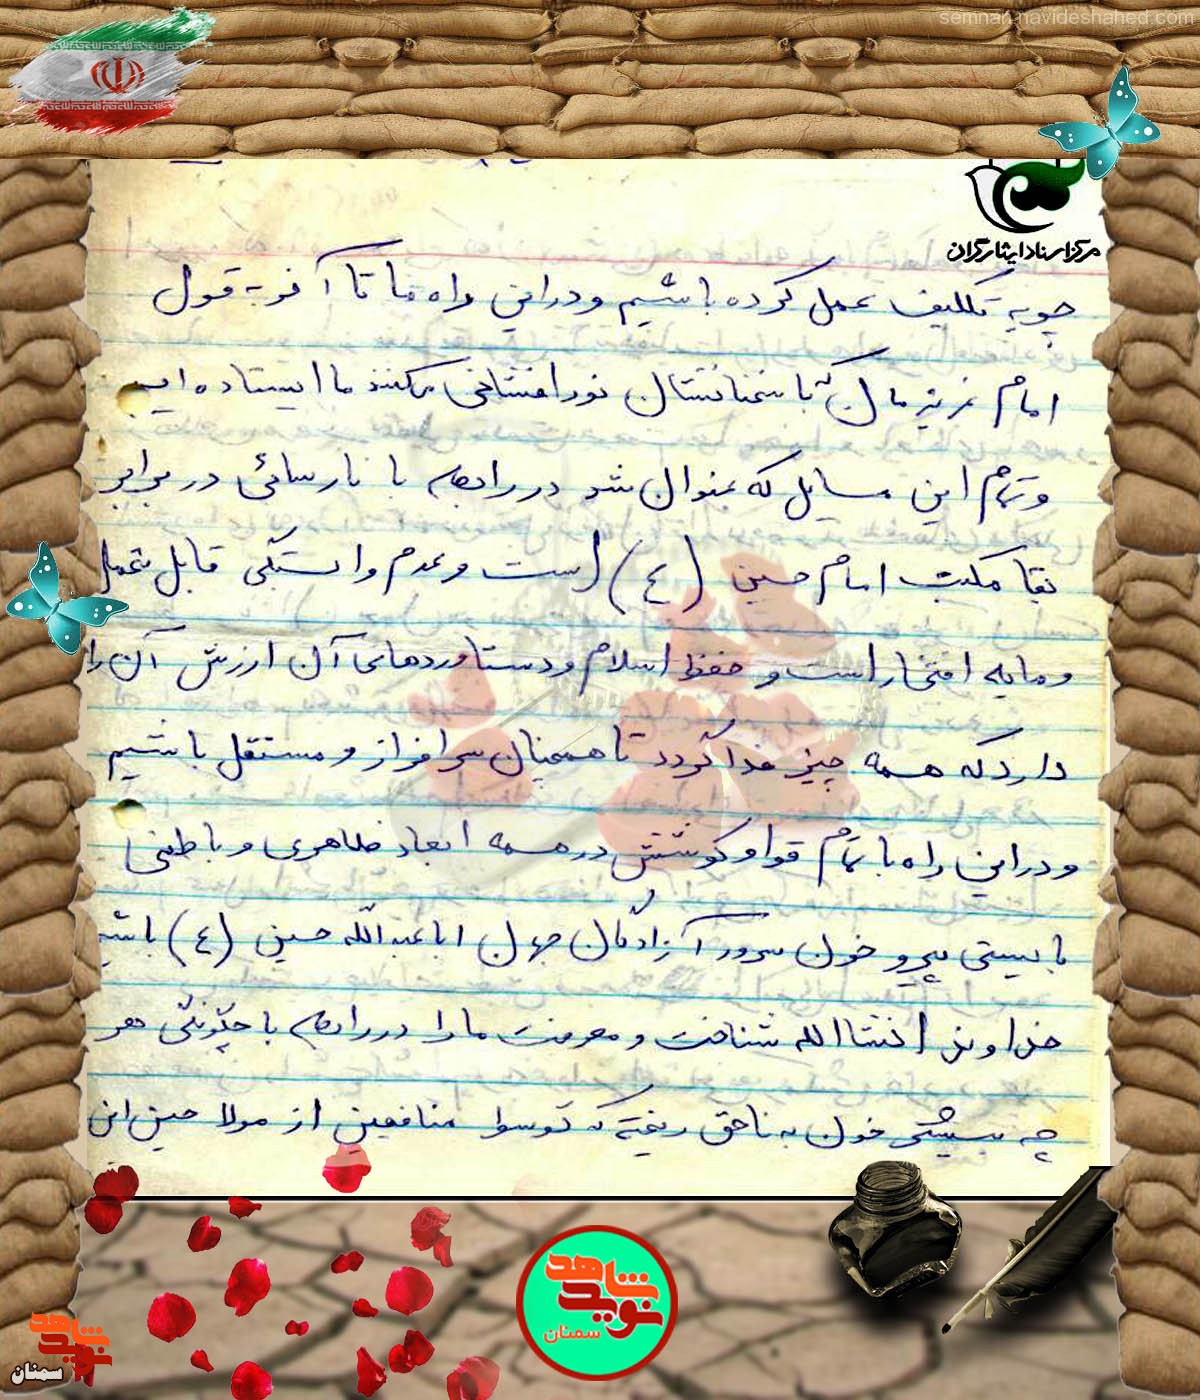 semnan.navideshahed.com
مرکز اسناد ایثارگران
چو به تکلیف عمل کرده باشیم و در این راه ما تا آخر به قول
امام عزیزمان که با سخنانشان نورافشانی میکنند ما ایستاده ایم
و تمام این مسایل که عنوان شد در رابطه با نارسائی در برابر
بقا مکتب امام حسین (ع) است و عدم وابستگی قابل تحمل
و مایه افتخار است و حفظ اسلام و دستاوردهای آن ارزش آن را
دارد که همه چیز فدا گردد تا همچنان سرافراز و مستقل باشیم
و در این راه با تمام قوا و کوشش در همه ابعاد ظاهری و باطنی
بایستی پیرو خون سرور آزادگان جهان اباعبدالله حسین (ع) باشیم
خداوند انشاالله شناخت و معرفت ما را در رابطه با چگونگی هر
چه بیشتر خون به ناحق ریخته که توسط منافقین از مولا حسین ابن
شاهد
نوید
سمنان
شاهد
نوید
سمنان